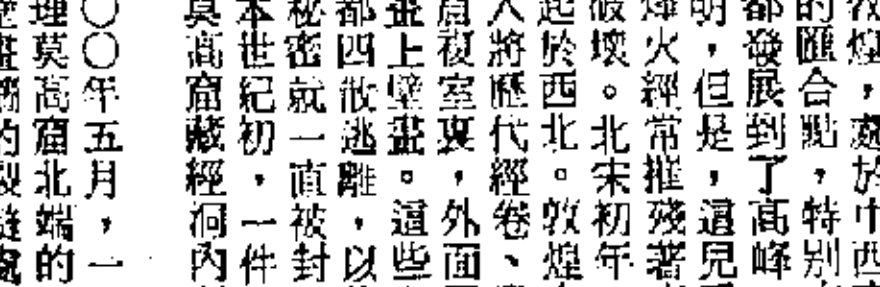 煌，處於中西
的匯合點，特別
都發展到了高峰
明，但是，這兒
烽火經常摧殘著
破壞。北宋初年
起於西北。敦煌
人將歷代經卷、
窟複室裏，外面
畫上壁畫。這些
都四散逃離，以
秘密就一直被封
本世紀初，一件
莫高窟藏經洞內
〇〇年五月，一
理莫高窟北端的
裂縫處